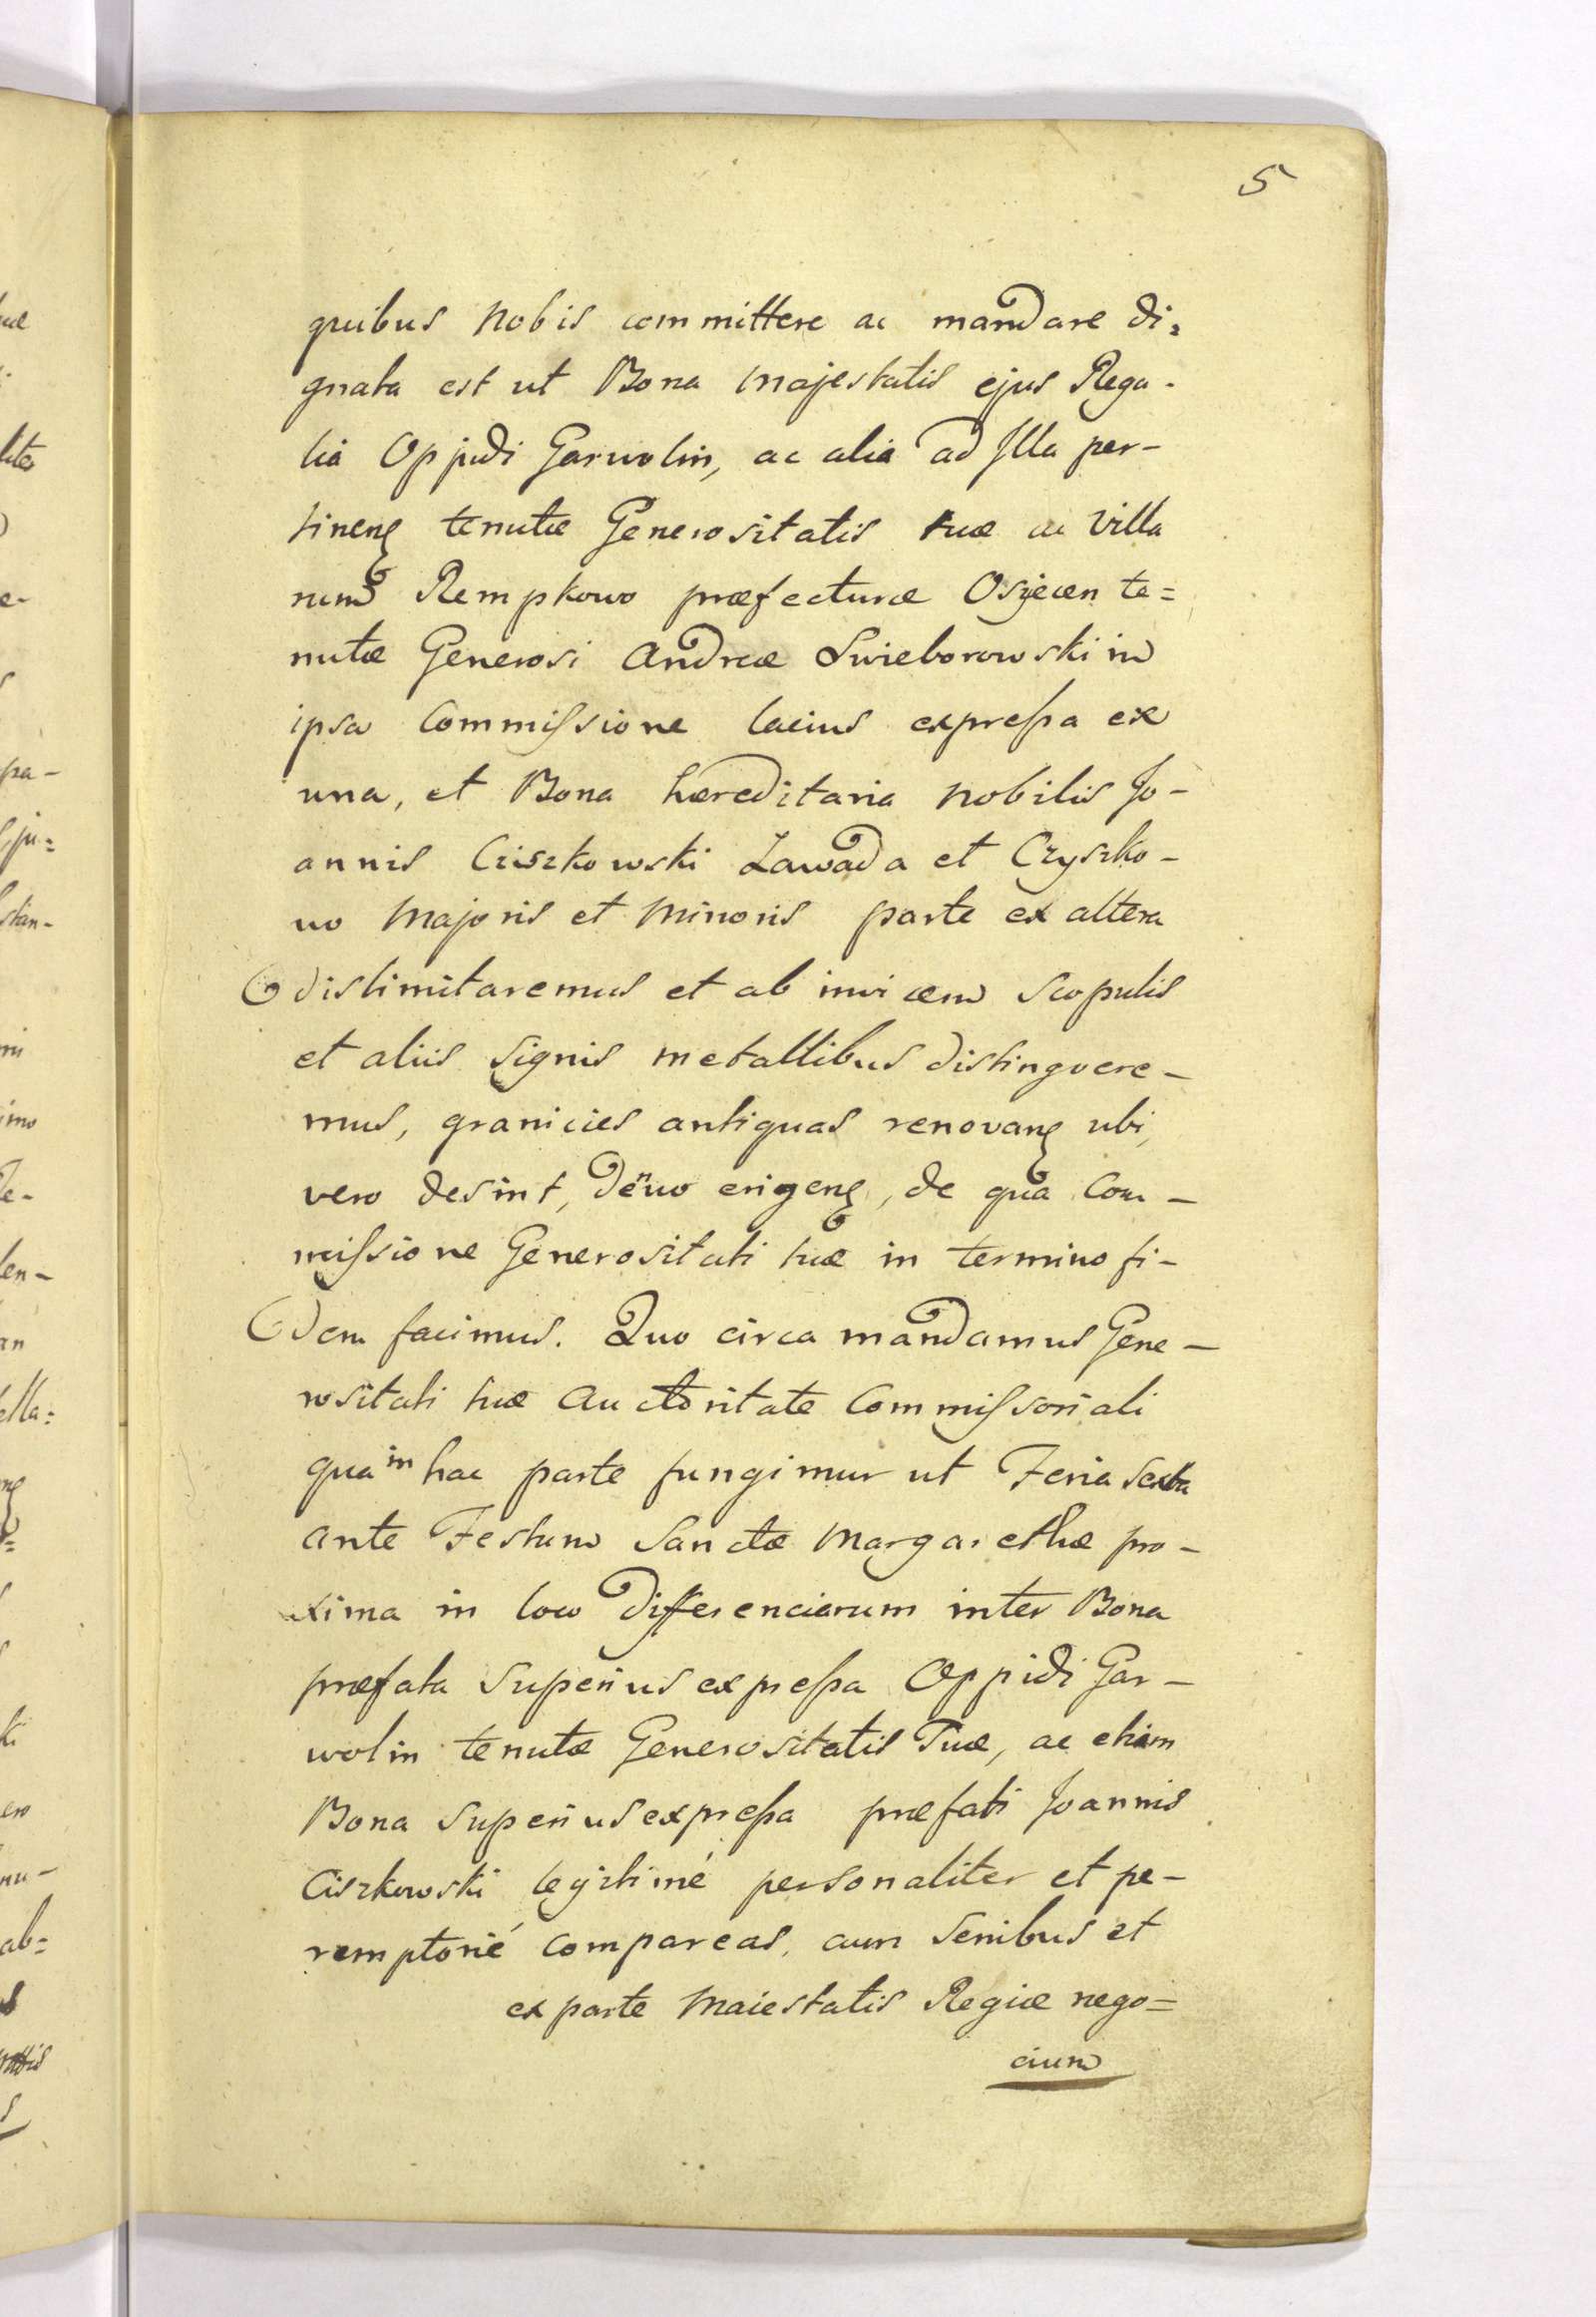 5
quibus Nobis committere ac mandare di=
gnata est ut Bona Majestatis ejus Rega-
lia Oppidi Garwolin, ac alia ad Illa per-
tinen tenutæ Generositatis tuæ ac Villa
num Rempkowo præfecturæ Osjecen te=
nutæ Generosi Andreæ Swieborowski in
ipsa Commissione lacius expressa ex
una, et Bona hæreditaria Nobilis Jo-
annis Ciszkowski Zawada et Czyszko-
wo Majoris et Minoris parte ex altera
dislimitaremus et ab invicem Scopulis
et aliis Signis metallibus distingvere-
mus, granicies antiquas renovan ubi
vero desint, denuo erigen, de qua Com-
missione Generositati tuæ in termino fi-
dem facimus. Quo circa mandamus Gene-
rositati tuæ Auctoritate Commissoriali
qua in hac parte fungimur ut Feria Sexta
ante Festum Sanctæ Margarethæ pro-
xima in loco differenciarum inter Bona
præfata Superius expressa Oppidi Gar-
wolin tenutæ Generositatis Tuæ, ac etiam
Bona Superius expressa præfati Joannis
Ciszkowski legitimé personaliter et pe-
remptorié Compareas, cum Senibus et
ex parte Maiestatis Regiæ nego=
cium